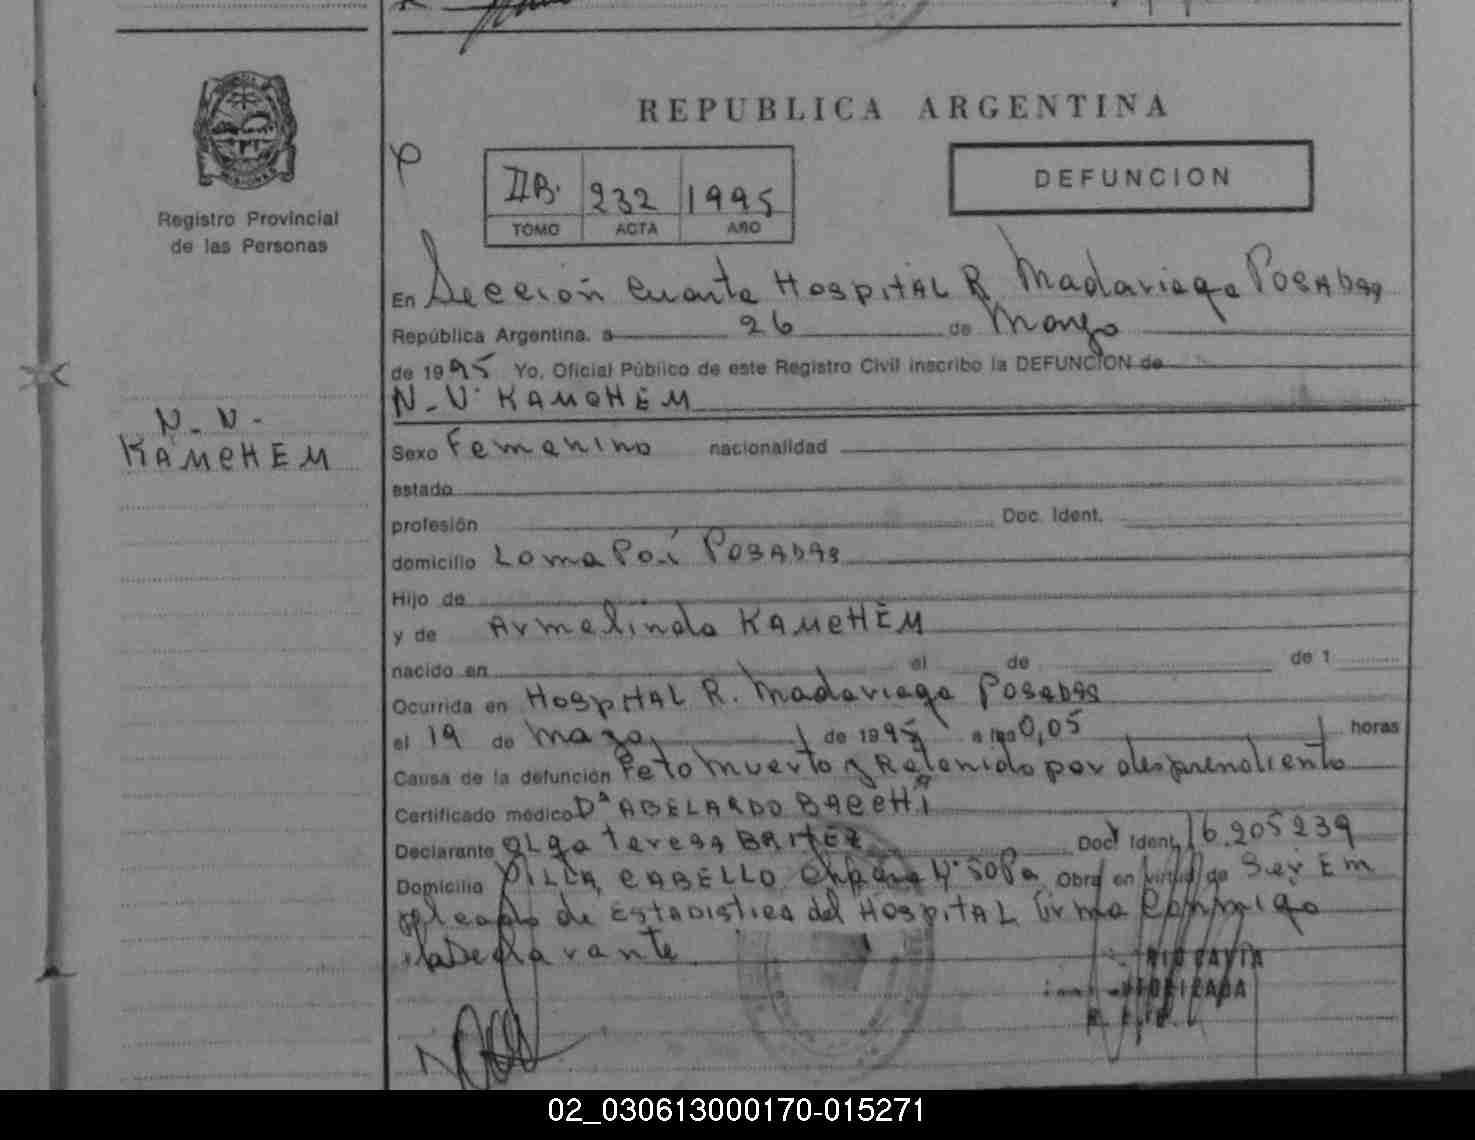 REPUBLICA ARGENTINA
IIB. 232 1995
TOMO ACTA AÑO
DEFUNCION
Registro Provincial
de las Personas
N_N-
KAMEHEM
En Sección Cuarta HospitAL R Madariaga POSADAS
República Argentina, a 26 de Marzo
de 1995 Yo, Oficial Público de este Registro Civil inscribo la DEFUNCION de
N-N- KAMEHEM
Sexo Femenino nacionalidad
estado
profesión Doc. Ident.
domicilio Loma Poí POSADAS
Hijo de
y de Armelinda KAMEHEM
nacido en el de de 1
Ocurrida en HospitAL R. Madariaga Posadas
el 19 de Marzo de 1995 a las 0,05 horas
Causa de la defunción Feto Muerto y Retenido por desprendiento
Certificado médico Dª ABELARDO BACCHI
Declarante OLga Teresa BRITEZ Doc. Ident. 16.205.239
Domicilio VILLA CABELLO Obra en virtud de Ser Em
pleado de ESTADISTICA del HOSPITAL firma Conmigo
la Declarante
02_030613000170-015271